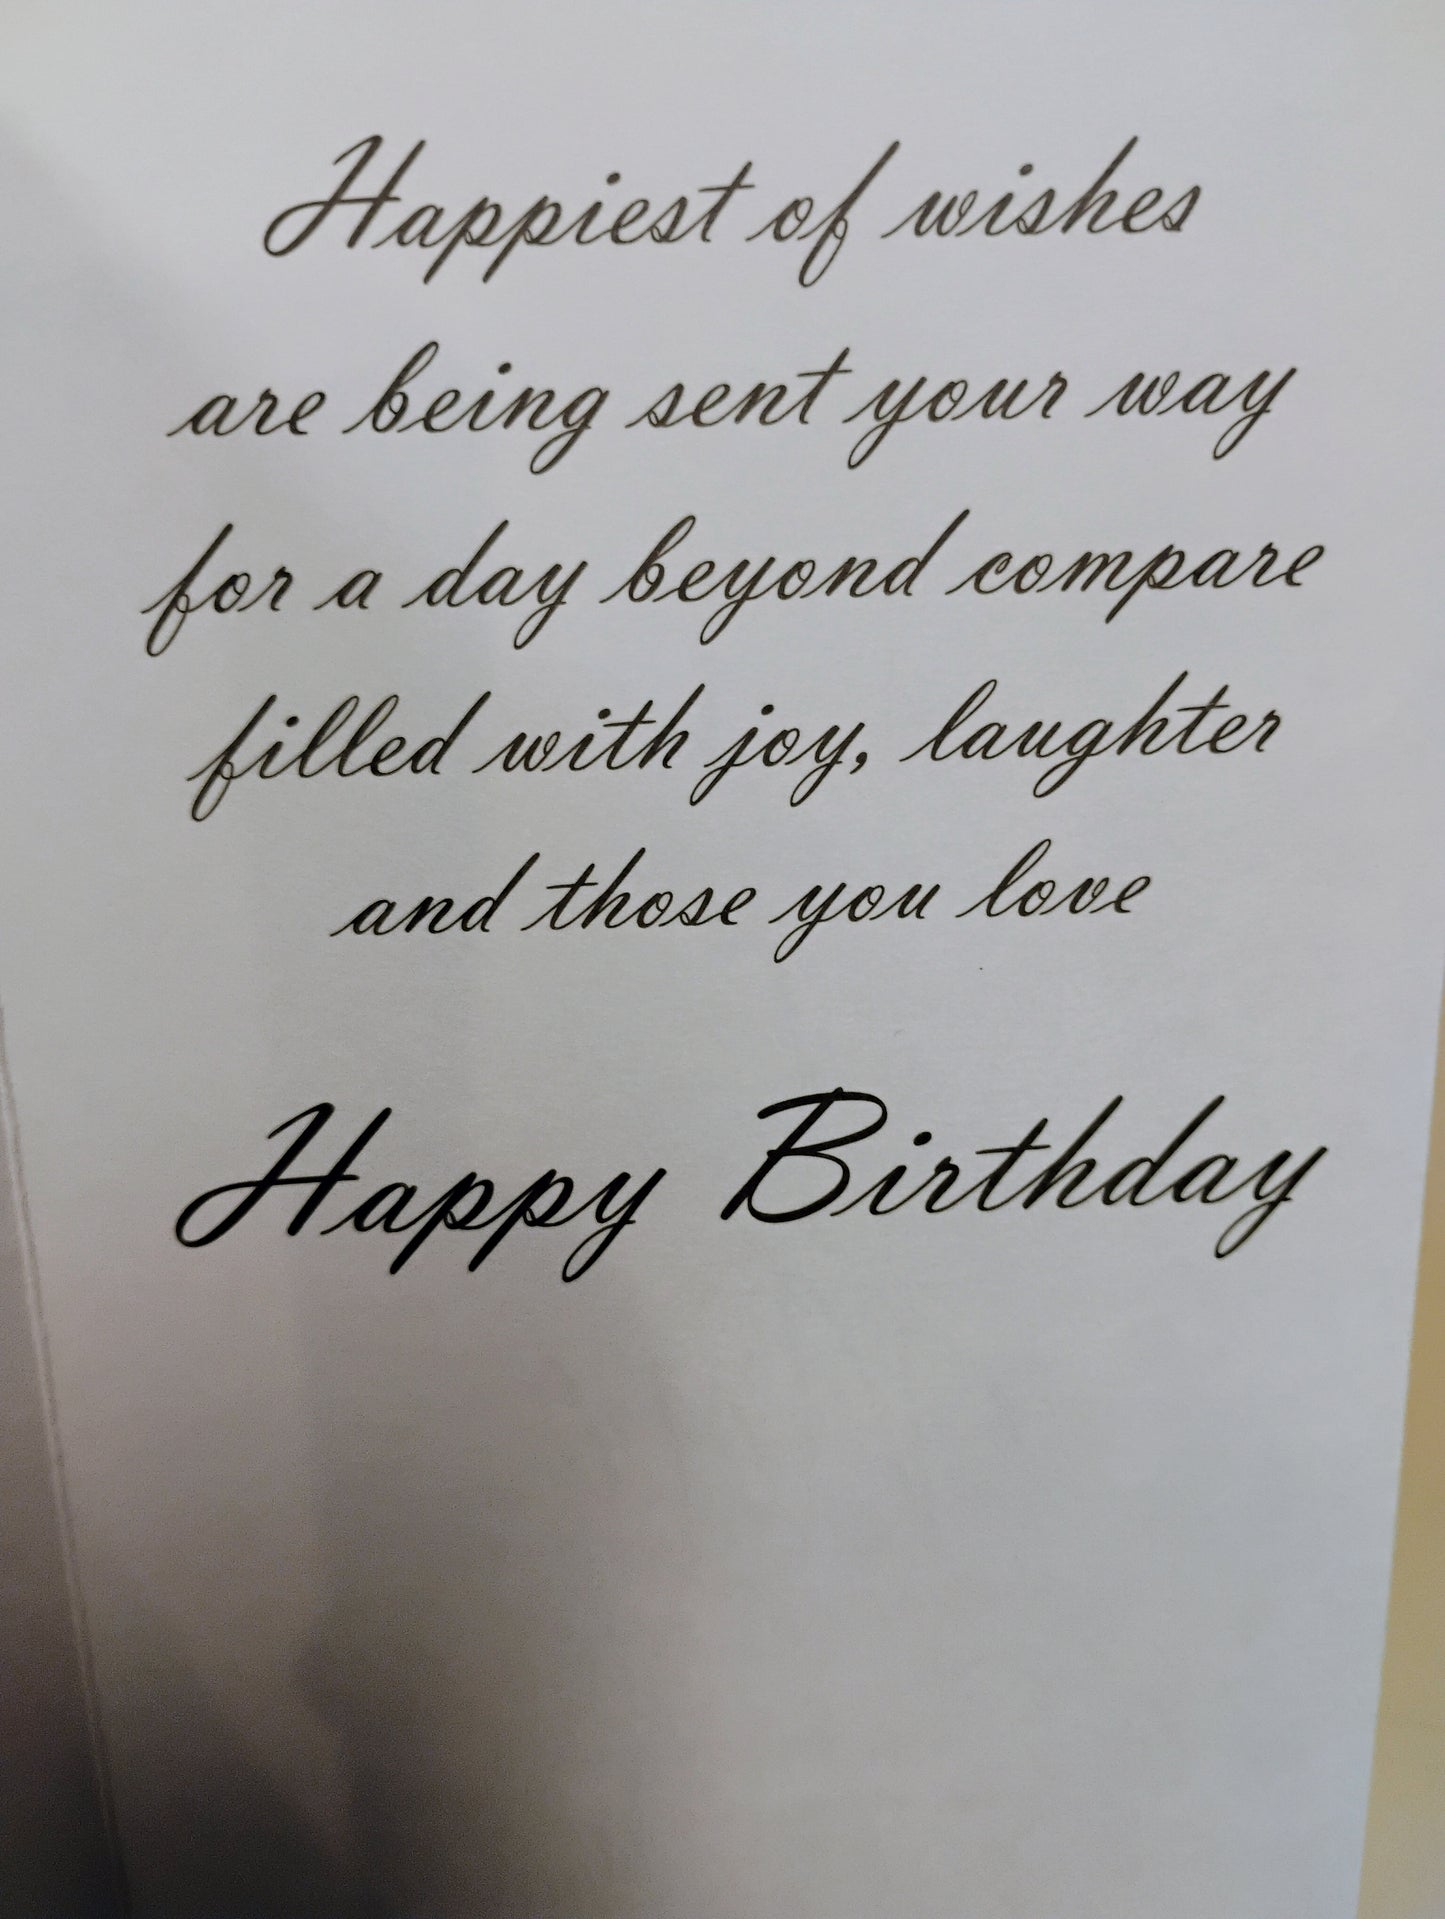 Happiest of wishes
are being sent your way
for a day beyond compare
filled with joy, laughter
and those you love
Happy Birthday